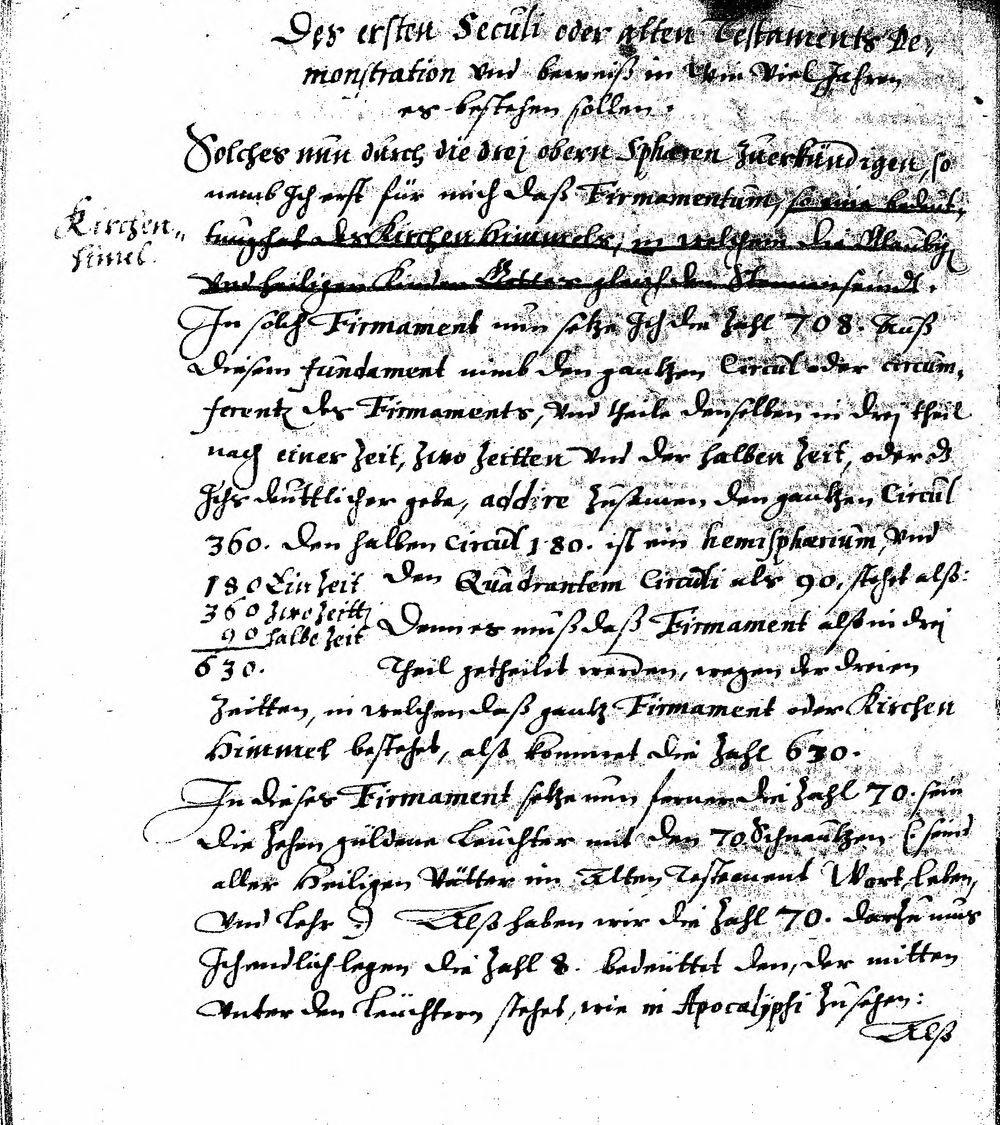 Des ersten Seculi oder alten Testaments De-
monstration Vnd beweiß in Wie Viel Jahren
es bestehen sollen.
Solches nun durch die drej obern Sphæren Zuerkündigen, so
nemb Ich erst für mich daß Firmamentum, so eine bedeut-
tung hat des Kirchen Himmels, in welchem die Glaubig
Vnd heiligen Kinder Gottes gleich den Sternen seindt.
Kirchen-
himel.
In solch Firmament nun setze Ich die Zahl 708. Auß
diesem fundament nimb den gantzen Circul oder circum-
ferentz des Firmaments, Vnd theile denselben in drej theil
nach einer Zeit, Zwo Zeitten Vnd der halben Zeit, oder dz
Ichs deuttlicher gebe, addire Zusamen den gantzen Circul
360. den halben Circul 180. ist ein hemisphærium, Vnd
den Quadrantem Circuli als 90, stehet alß:
180 Ein Zeit
360 Zwo Zeitt
90 halbe Zeit
630.
Denn es muß daß Firmament alß in drej
Theil getheilet werden, wegen der dreien
Zeitten, in welchen daß gantz Firmament oder Kirchen
Himmel bestehet, alß kommet die Zahl 630.
In dieses Firmament setze nun ferner die Zahl 70. sein
die Zehen güldene Leuchter mit den 70 Schnautzen (: seind
aller Heiligen Vätter im Alten Testament Wort, leben,
Vnd Lehr :) Alß haben wir die Zahl 70. darzu mus
Ich endlich legen die Zahl 8. bedeüttet den, der mitten
Vnter den Leüchtern stehet, wie in Apocalypsi Zusehen:
Alß